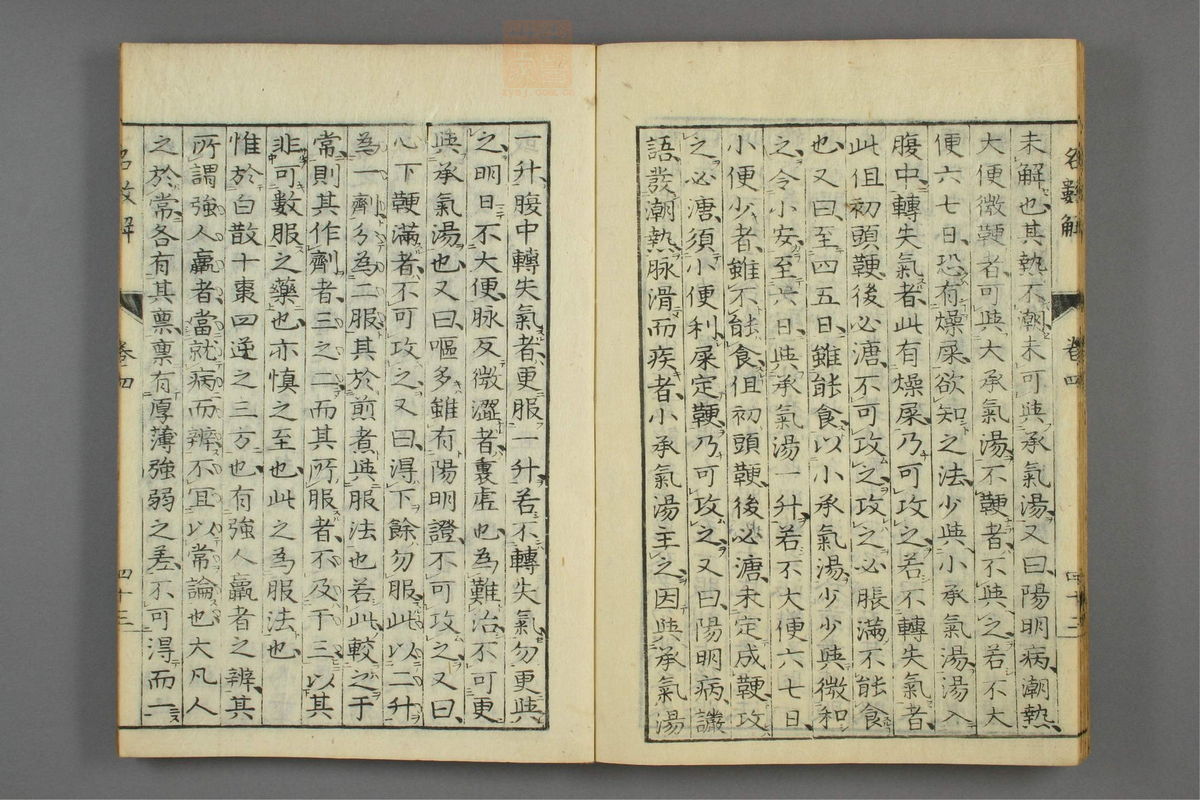 名數解
卷四
四十二
未解也其熱不潮未可與承氣湯又曰陽明病潮熱
大便微鞕者可與大承氣湯不鞕者不與之若不大
便六七日恐有燥屎欲知之法少與小承氣湯湯入
腹中轉失氣者此有燥屎乃可攻之若不轉失氣者
此但初頭鞕後必溏不可攻之攻之必脹滿不能食
也又曰至四五日雖能食以小承氣湯少少與微和
之令小安至六日與承氣湯一升若不大便六七日
小便少者雖不能食但初頭鞕後必溏未定成鞕攻
之必溏須小便利屎定鞕乃可攻之又曰陽明病讝
語發潮熱脉滑而疾者小承氣湯主之因與承氣湯
一升腹中轉失氣者更服一升若不轉失氣勿更與
之明日不大便脉反微澀者裏虛也為難治不可更
與承氣湯也又曰嘔多雖有陽明證不可攻之又曰
心下鞕滿者不可攻之又曰得下餘勿服此以二升
為一劑分為二服其於煎煮與服法也若此較之于
常則其作劑者三之二而其所服者不及于三以其
非可數服之藥也亦慎之至也此之為服法也
惟於白散十棗四逆之三方也有強人羸者之辨其
所謂強人羸者當就病而辨不宜以常論也大凡人
之於常各有其稟稟有厚薄強弱之差不可得而一
名數解
卷四
四十三